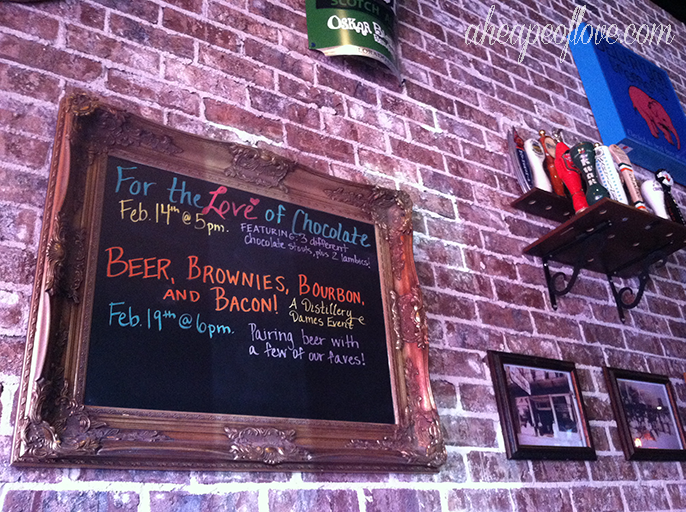 SCOTCH A
OSKAR B
aheapoflove.com
For the Love of Chocolate
Feb. 14th @ 5pm.
FEATURING: 3 different
chocolate stouts, plus 2 lambics!
BEER, BROWNIES, BOURBON,
AND BACON!
A Distillery
Dames Event
Feb. 19th @ 6pm.
Pairing beer with
a few of our faves!
KWAK